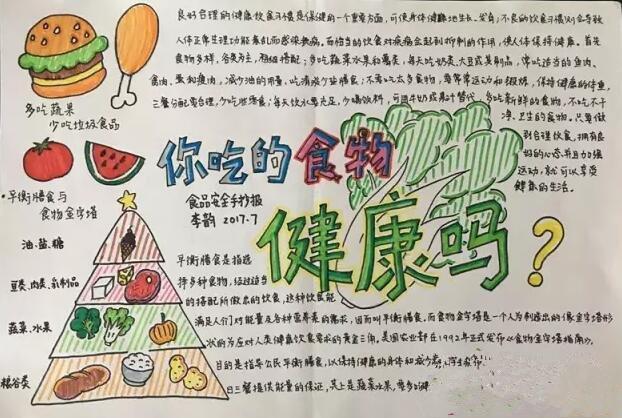 良好合理的健康饮食习惯是保健的一个重要方面,可使身体健康地生长、发育;不良的饮食习惯则会导致
人体正常生理功能紊乱而感染疾病。而恰当的饮食对疾病会起到抑制的作用,使人体保持健康。首先
食物多样,谷类为主,粗细搭配;多吃蔬菜水果和薯类,每天吃奶类、大豆或其制品,常吃适当的鱼肉、
禽肉、蛋和瘦肉,减少油的用量,吃清淡少盐膳食;不需吃太多食物,要常常运动和锻炼,保持健康的体重,
三餐分配要合理,少吃些零食;每天饮水要充足,少喝饮料,可用牛奶或果汁替代,多吃新鲜的食物,不吃不干
净、卫生的食物。只要做
到合理饮食,拥有良
好的心态并且加强
运动,就可以享受
健康的生活。
多吃蔬果
少吃垃圾食品
你吃的食物
健康吗?
食品安全手抄报
李韵 2017.7
平衡膳食与
食物金字塔
油、盐、糖
豆类、肉类、乳制品
蔬菜、水果
粮谷类
平衡膳食是指选
择多种食物,经过适当
的搭配所做出的饮食,这种饮食能
满足人们对能量及各种营养素的需求,因而叫平衡膳食。而食物金字塔是一个人为制造出的像金字塔形
状的为应对人类健康饮食需求的黄金三角,美国农业部在1992年正式发布以食物金字塔指南,
目的是指导公民平衡膳食,以保持健康的身体和减少
日三餐提供能量的保证,其上是蔬菜水果,要多